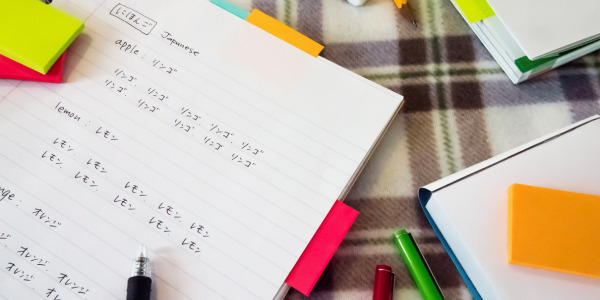 にほんご Japanese
apple : リンゴ
リンゴ リンゴ リンゴ リンゴ リンゴ
リンゴ リンゴ リンゴ リンゴ リンゴ
lemon : レモン
レモン レモン レモン レモン レモン
レモン レモン レモン レモン レモン
nge : オレンジ
オレンジ オレンジ
オレンジ オレンジ